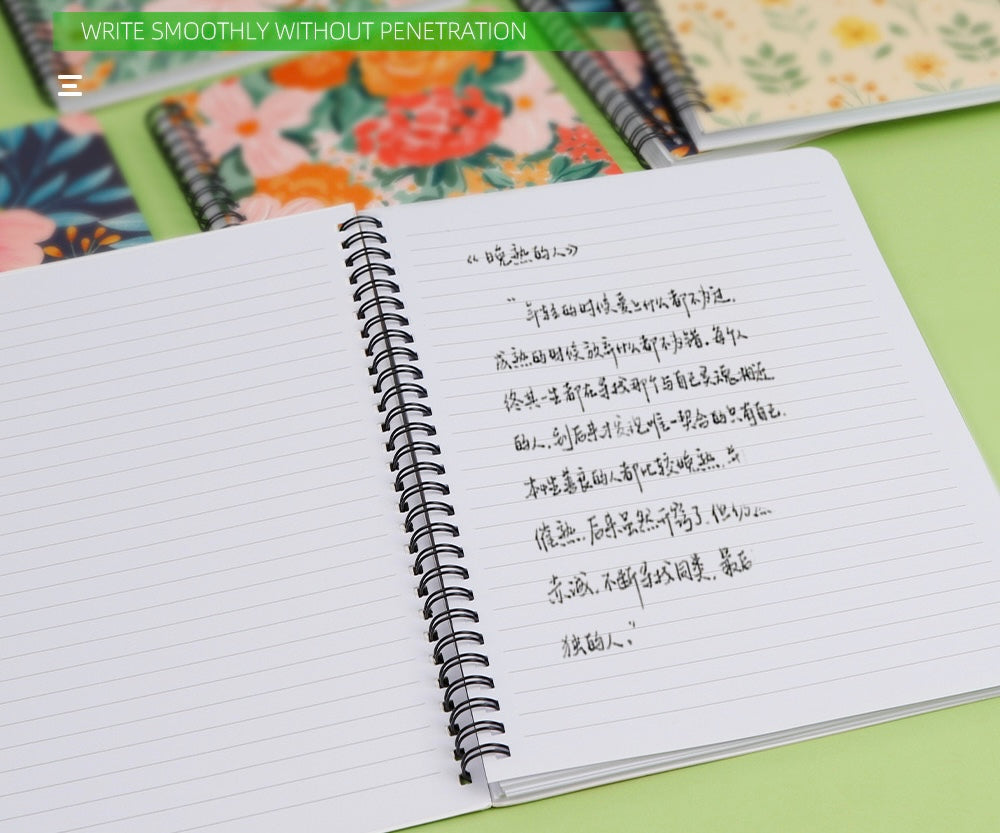 WRITE SMOOTHLY WITHOUT PENETRATION
《晚熟的人》
"年轻的时候爱上什么都不为过.
成熟的时候放弃什么都不为错.每个人
终其一生都在寻找那个与自己灵魂相近
的人,到后来才发现唯一契合的只有自己.
本性善良的人都比较晚熟,并
催熟,后来虽然开窍了,但仍然
赤诚,不断寻找同类,最后
独的人."